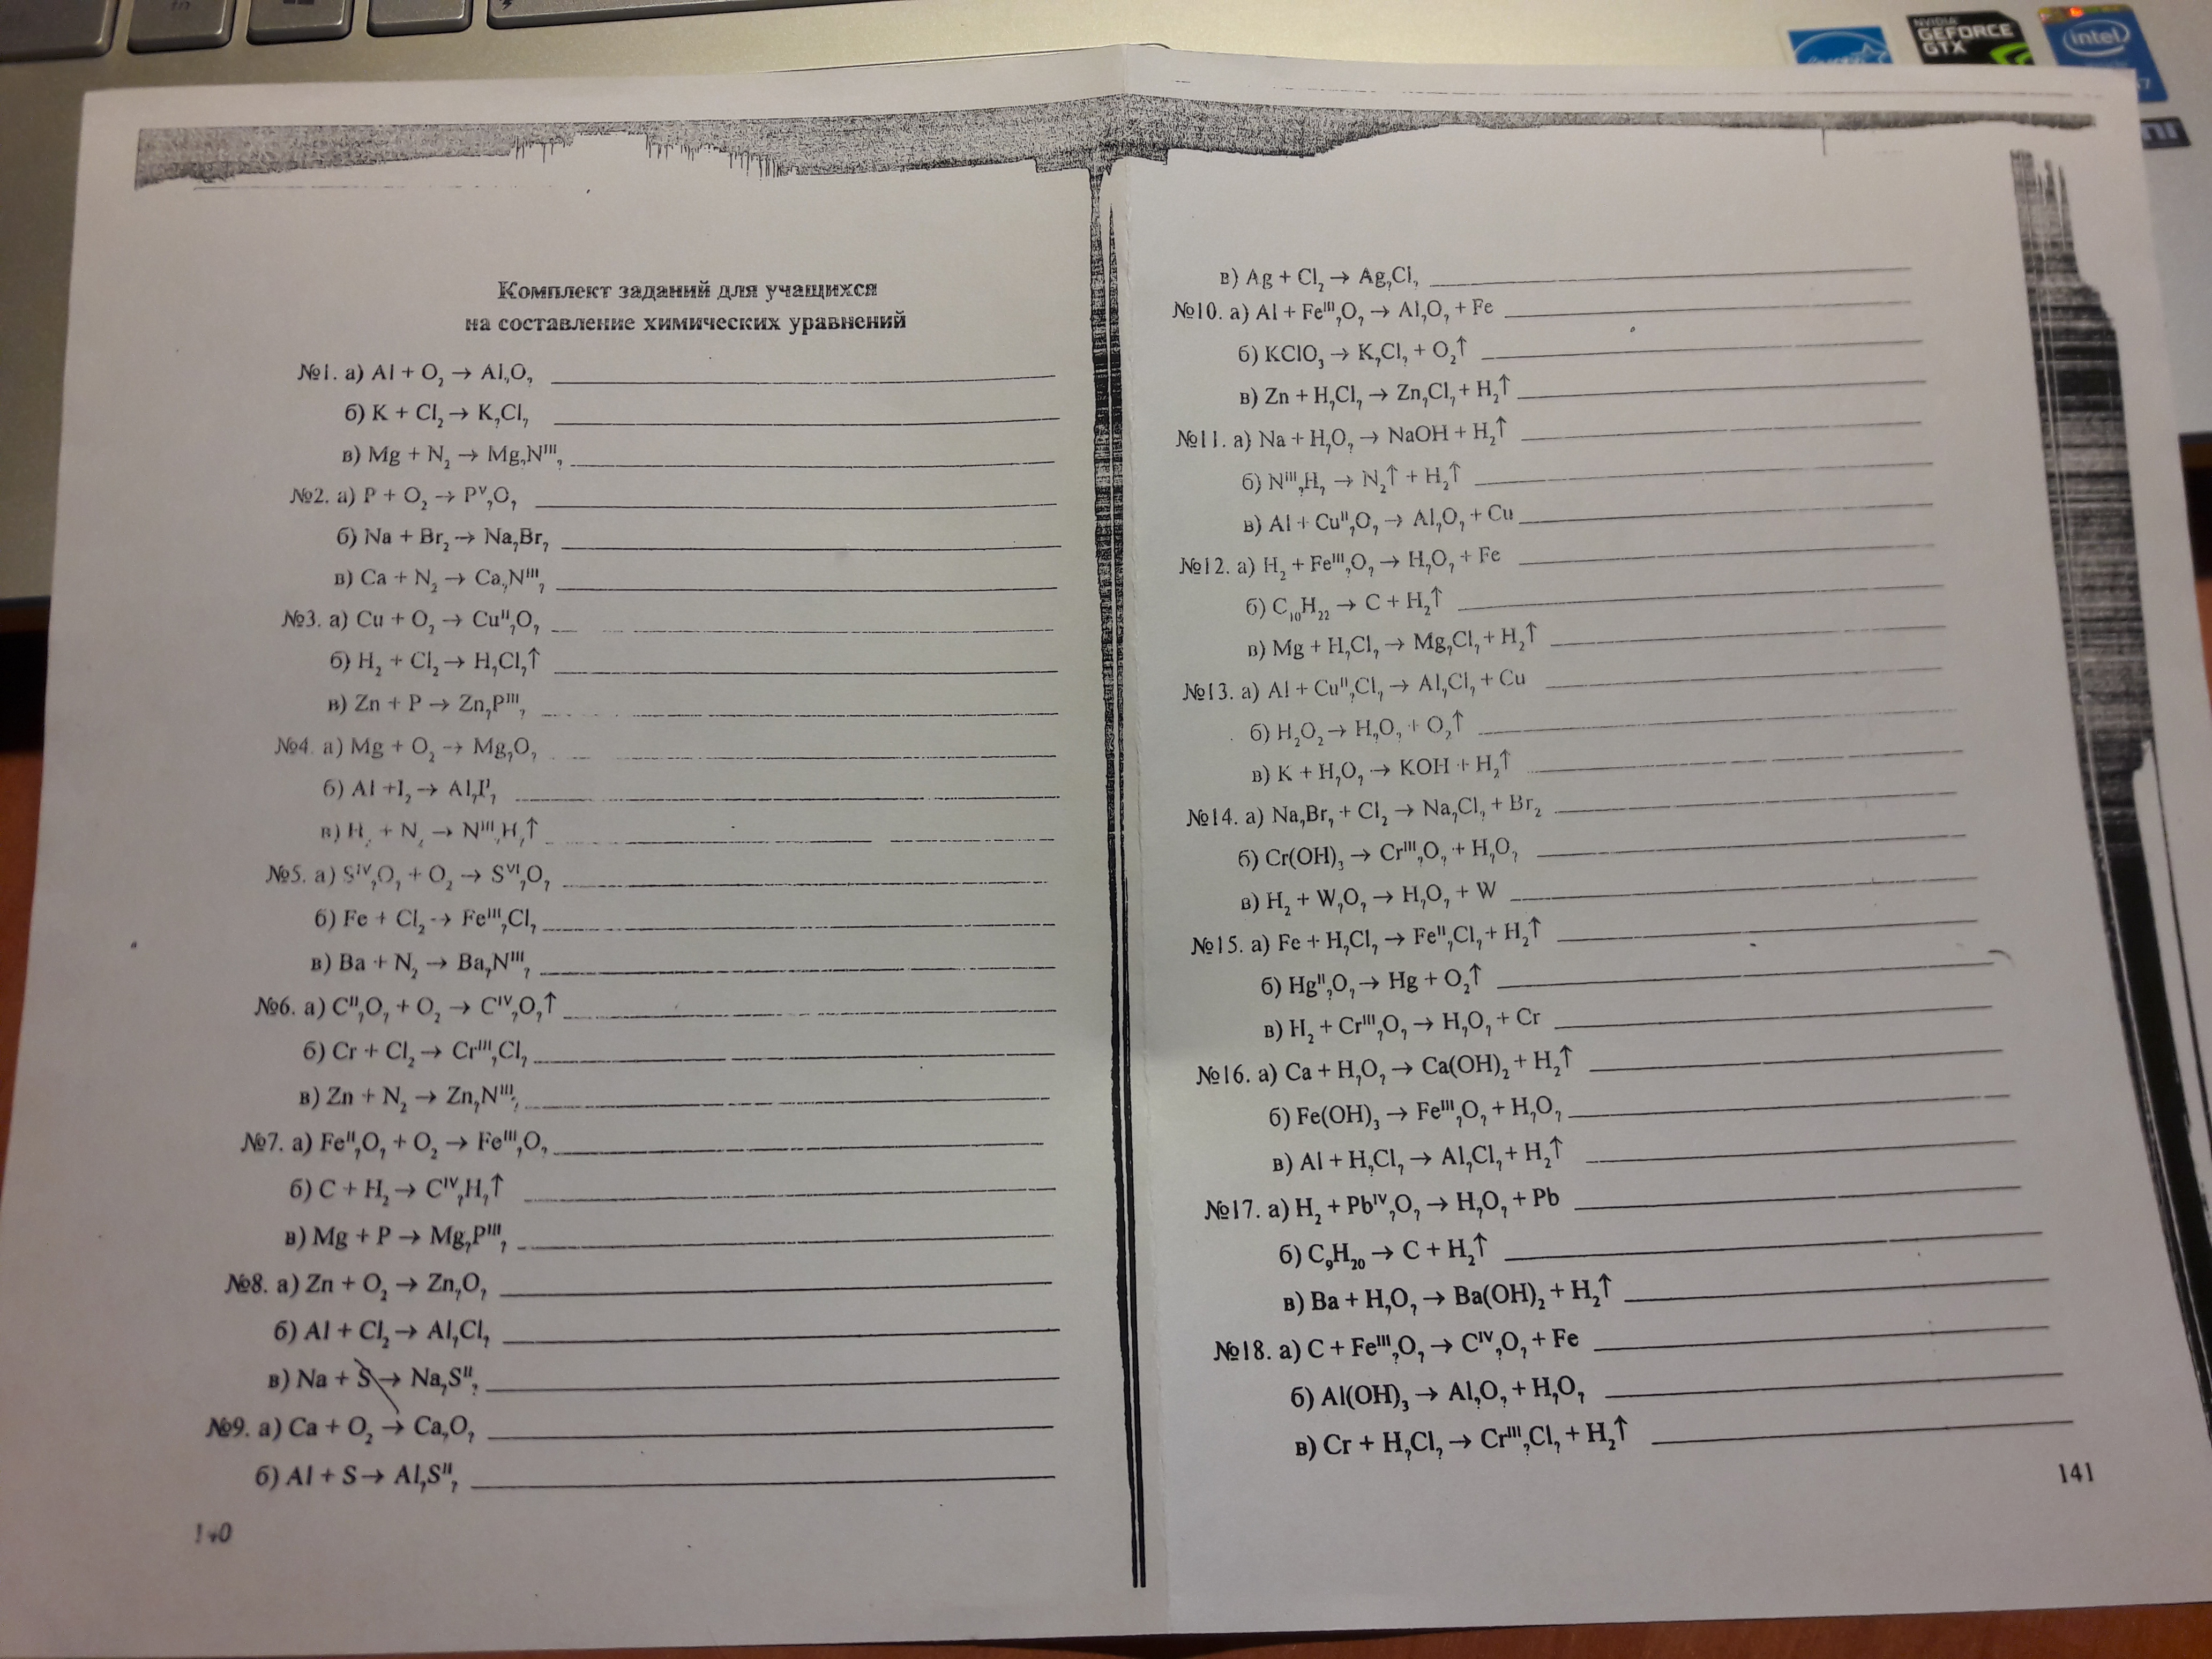 NVIDIA
GEFORCE
GTX
intel
Комплект заданий для учащихся
на составление химических уравнений
№1. а) Al + O₂ → Al?O? ____
б) K + Cl₂ → K?Cl? ____
в) Mg + N₂ → Mg?Nᴵᴵᴵ? ____
№2. а) P + O₂ → Pⱽ?O? ____
б) Na + Br₂ → Na?Br? ____
в) Ca + N₂ → Ca?Nᴵᴵᴵ? ____
№3. а) Cu + O₂ → Cuᴵᴵ?O? ____
б) H₂ + Cl₂ → H?Cl?↑ ____
в) Zn + P → Zn?Pᴵᴵᴵ? ____
№4. а) Mg + O₂ → Mg?O? ____
б) Al +I₂ → Al?Iᴵ? ____
в) H₂ + N₂ → Nᴵᴵᴵ?H?↑ ____
№5. а) Sᴵⱽ?O? + O₂ → Sⱽᴵ?O? ____
б) Fe + Cl₂ → Feᴵᴵᴵ?Cl? ____
в) Ba + N₂ → Ba?Nᴵᴵᴵ? ____
№6. а) Cᴵᴵ?O? + O₂ → Cᴵⱽ?O?↑ ____
б) Cr + Cl₂ → Crᴵᴵᴵ?Cl? ____
в) Zn + N₂ → Zn?Nᴵᴵᴵ? ____
№7. а) Feᴵᴵ?O? + O₂ → Feᴵᴵᴵ?O? ____
б) C + H₂ → Cᴵⱽ?H?↑ ____
в) Mg + P → Mg?Pᴵᴵᴵ? ____
№8. а) Zn + O₂ → Zn?O? ____
б) Al + Cl₂ → Al?Cl? ____
в) Na + S → Na?Sᴵᴵ? ____
№9. а) Ca + O₂ → Ca?O? ____
б) Al + S → Al?Sᴵᴵ? ____
140
в) Ag + Cl₂ → Ag?Cl? ____
№10. а) Al + Feᴵᴵᴵ?O? → Al?O? + Fe ____
б) KClO₃ → K?Cl? + O₂↑ ____
в) Zn + H?Cl? → Zn?Cl? + H₂↑ ____
№11. а) Na + H?O? → NaOH + H₂↑ ____
б) Nᴵᴵᴵ?H? → N₂↑ + H₂↑ ____
в) Al + Cuᴵᴵ?O? → Al?O? + Cu ____
№12. а) H₂ + Feᴵᴵᴵ?O? → H?O? + Fe ____
б) C₁₀H₂₂ → C + H₂↑ ____
в) Mg + H?Cl? → Mg?Cl? + H₂↑ ____
№13. а) Al + Cuᴵᴵ?Cl? → Al?Cl? + Cu ____
б) H₂O₂ → H?O? + O₂↑ ____
в) K + H?O? → KOH + H₂↑ ____
№14. а) Na?Br? + Cl₂ → Na?Cl? + Br₂ ____
б) Cr(OH)₃ → Crᴵᴵᴵ?O? + H?O? ____
в) H₂ + W?O? → H?O? + W ____
№15. а) Fe + H?Cl? → Feᴵᴵ?Cl? + H₂↑ ____
б) Hgᴵᴵ?O? → Hg + O₂↑ ____
в) H₂ + Crᴵᴵᴵ?O? → H?O? + Cr ____
№16. а) Ca + H?O? → Ca(OH)₂ + H₂↑ ____
б) Fe(OH)₃ → Feᴵᴵᴵ?O? + H?O? ____
в) Al + H?Cl? → Al?Cl? + H₂↑ ____
№17. а) H₂ + Pbᴵⱽ?O? → H?O? + Pb ____
б) C₉H₂₀ → C + H₂↑ ____
в) Ba + H?O? → Ba(OH)₂ + H₂↑ ____
№18. а) C + Feᴵᴵᴵ?O? → Cᴵⱽ?O? + Fe ____
б) Al(OH)₃ → Al?O? + H?O? ____
в) Cr + H?Cl? → Crᴵᴵᴵ?Cl? + H₂↑ ____
141